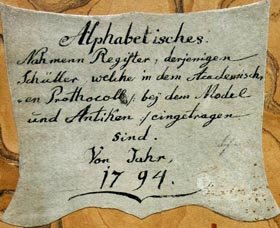 Alphabetisches.
Nahmenn Register, derjenigen
Schüller welche in dem Academisch,
en Prothocoll /: bej dem Model
und Antiken / eingetragen
sind.
Von Jahr,
1794.